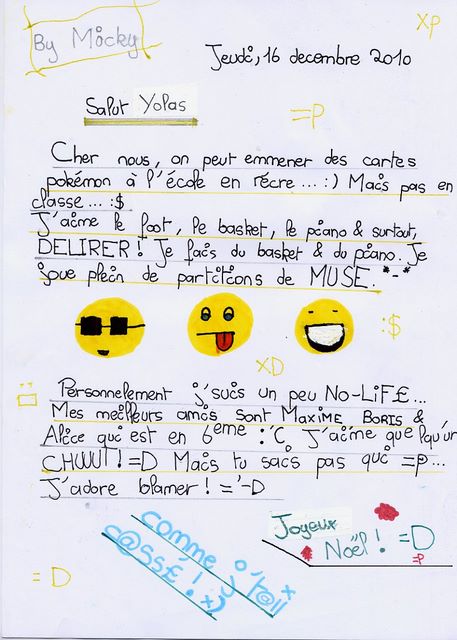 By Micky
XP
Jeudi, 16 decembre 2010
Salut Yolas
=P
Cher nous, on peut emmener des cartes
pokémon à l'école en récre...:) Mais pas en
classe...:$
J'aime le foot, le basket, le piano & surtout,
DELIRER! Je fais du basket & du piano. Je
joue plein de partitions de MUSE. *-*
:$
XD
Personnelement j'suis un peu NO-LiF£...
Mes meilleurs amis sont MAXiME BORiS &
Alice qui est en 6eme :'C J'aime quelqu'un
CHUUUT! =D Mais tu sais pas qui =P...
J'adore blamer! ='-D
Joyeux
Noël! =D
=P
comme
c@ss£! x)
=D